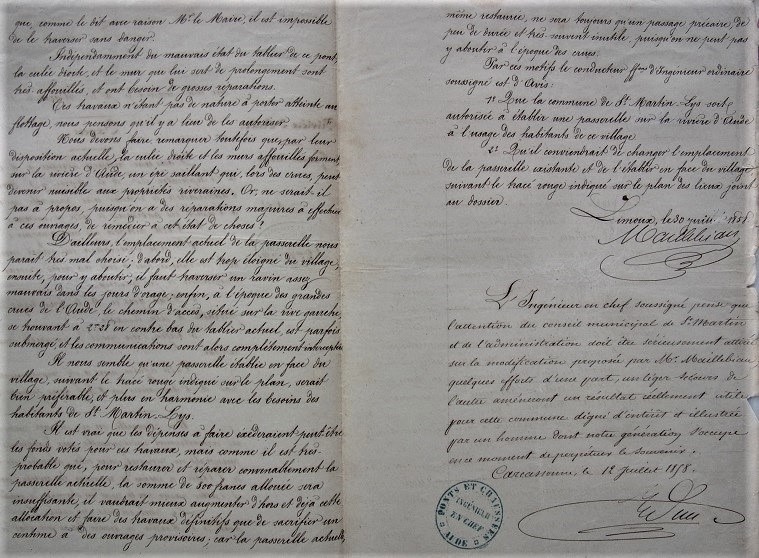 que, comme le dit avec raison Mr. le Maire, il est impossible
de le traverser sans danger.
Indépendamment du mauvais état du tablier de ce pont,
la culée droite, et le mur que leur sert de prolongement sont
très affouillés, et ont besoin de grosses réparations.
Ces travaux n'étant pas de nature à porter atteinte au
flottage, nous pensons qu'il y a lieu de les autoriser.
Nous devons faire remarquer toutefois que par leur
disposition actuelle, la culée droite et les murs affouillés forment
sur la rivière d'Aude, un épi saillant qui, lors des crues, peut
devenir nuisible aux propriétés riveraines. Or, ne serait-il
pas à propos, puisqu'on a des réparations majeures à effectuer
à ces ouvrages, de remédier à cet état de choses?
D'ailleurs, l'emplacement actuel de la passerelle nous
paraît très mal choisi: d'abord, elle est trop éloignée du village,
ensuite, pour y aboutir, il faut traverser un ravin assez
mauvais dans les jours d'orage; enfin, à l'époque des grandes
crues de l'Aude, le chemin d'accès, situé sur la rive gauche,
se trouvant à 2m28 en contre bas du tablier actuel, est parfois
submergé, et les communications sont alors complètement interceptées.
Il nous semble qu'une passerelle établie en face du
village, suivant le tracé rouge indiqué sur le plan, serait
bien préférable, et plus en harmonie avec les besoins des
habitants de St. Martin-Lys.
Il est vrai que les dépenses à faire excéderaient peut-être
les fonds votés pour ces travaux, mais comme il est très
probable que, pour restaurer et réparer convenablement la
passerelle actuelle, la somme de 800 francs allouée sera
insuffisante, il vaudrait mieux augmenter d'hors et déjà cette
allocation et faire des travaux définitifs que de sacrifier un
centime à des ouvrages provisoires, car la passerelle actuelle,
même restaurée, ne sera toujours qu'un passage précaire, de
peu de durée et très souvent inutile puisqu'on ne peut pas
y aboutir à l'époque des crues.
Par ces motifs le conducteur ffons d'Ingénieur ordinaire
soussigné est d'Avis:
1º Que la commune de St. Martin-Lys soit
autorisée à établir une passerelle sur la rivière d'Aude
à l'usage des habitants de ce village.
2º Qu'il conviendrait de changer l'emplacement
de la passerelle existante et de l'établir en face du village
suivant le tracé rouge indiqué sur le plan des lieux joint
au dossier.
Limoux, le 30 juin 1858
Maillebiau
L'Ingénieur en chef soussigné pense que
l'attention du conseil municipal de St. Martin
et de l'administration doit être sérieusement attirée
sur la modification proposée par Mr. Maillebiau
quelques efforts d'une part, un léger secours de
l'autre amèneront un résultat réellement utile
pour cette commune digne d'intérêt et illustrée
par un homme dont notre génération s'occupe
en ce moment de perpétuer le souvenir.
Carcassonne, le 12 Juillet 1858.
PONTS ET CHAUSSÉES
INGÉNIEUR
EN CHEF
AUDE